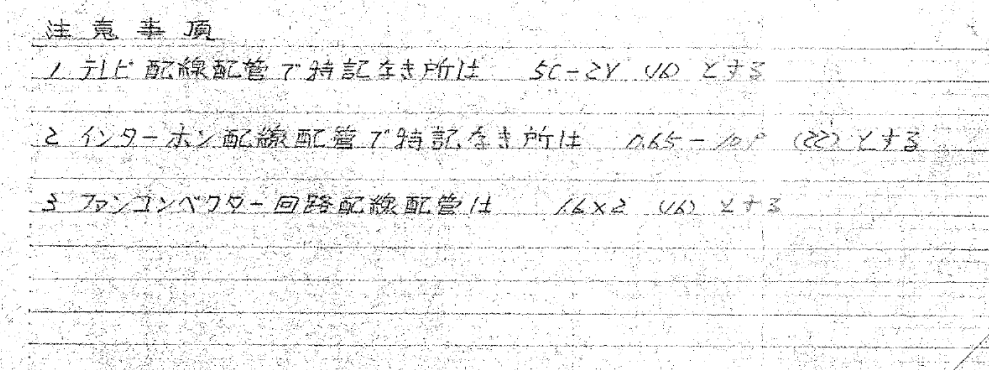 注意事項
1 テレビ配線配管で特記なき所は 5C-2V (16) とする
2 インターホン配線配管で特記なき所は 0.65-10P (22) とする
3 ファンコンベクター回路配線配管は 1.6×2 (16) とする